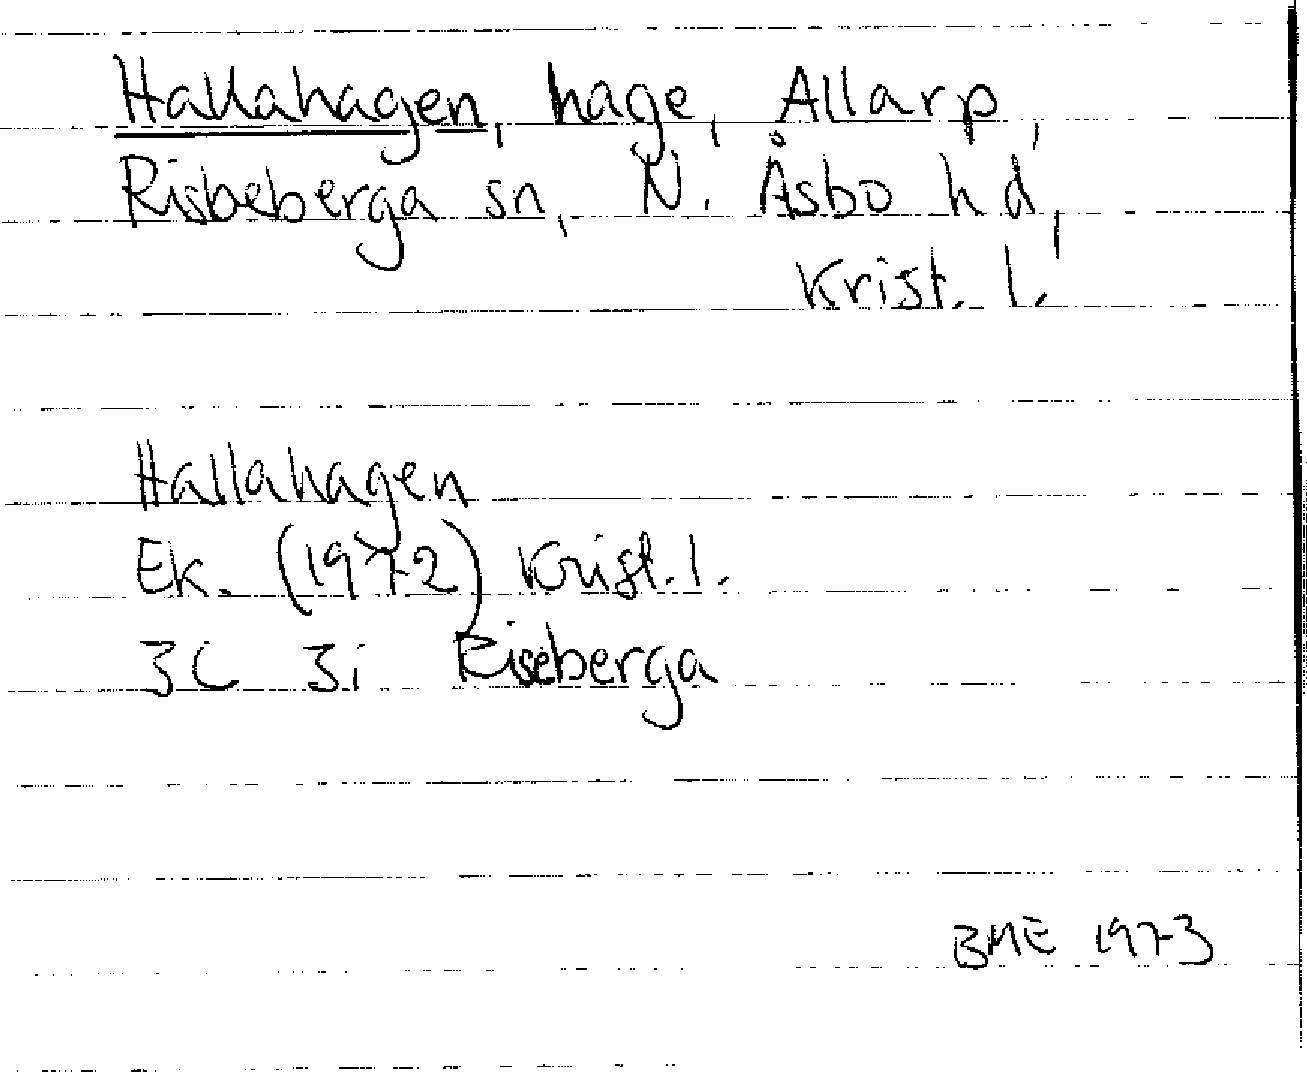 Hallahagen, hage, Allarp,
Risbeberga sn, N. Åsbo hd,
Krist. l.
Hallahagen
Ek. (1972) Krist. l.
3C 3i Riseberga
BME 1973